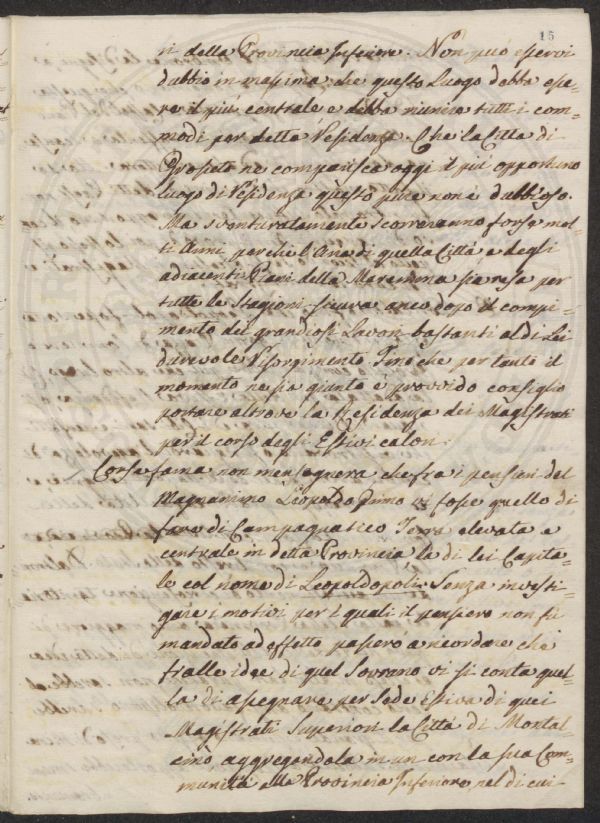 15
ri della Provincia Inferiore. Non può esservi
dubbio in massima che questo Luogo debba esse=
re il più centrale e debba riunire tutti i com=
modi per detta Residenza. Che la Città di
Grosseto ne comparisca oggi il più opportuno
luogo di Residenza questo pure non è dubbioso.
Ma sventuratamente scorreranno forse mol=
ti Anni perche l'Aria di quella Città e degli
adiacenti Piani della Maremma sia resa per
tutte le Stagioni sicura anco dopo il compi=
mento dei grandiosi Lavori bastanti al di Lei
durevole Risorgimento. Fino che per tanto il
momento ne sia giunto è provvido consiglio
portare altrove la Residenza dei Magistrati
per il corso degli Estivi calori.
Corse fama non mensognera che fra i pensieri del
Magnanimo Leopoldo Primo vi fosse quello di
fare di Campagnatico Terra elevata e
centrale in detta Provincia la di lei Capita=
le col nome di Leopoldopoli. Senza investi=
gare i motivi per i quali il pensiero non fù
mandato ad effetto passerò a ricordare che
fralle idee di quel Sovrano vi si conta quel=
la di assegnare per Sede Estiva di quei
Magistrati Superiori la Città di Montal=
cino, aggregandola in un con la sua Com=
munità alla Provincia Inferiore, nel di cui